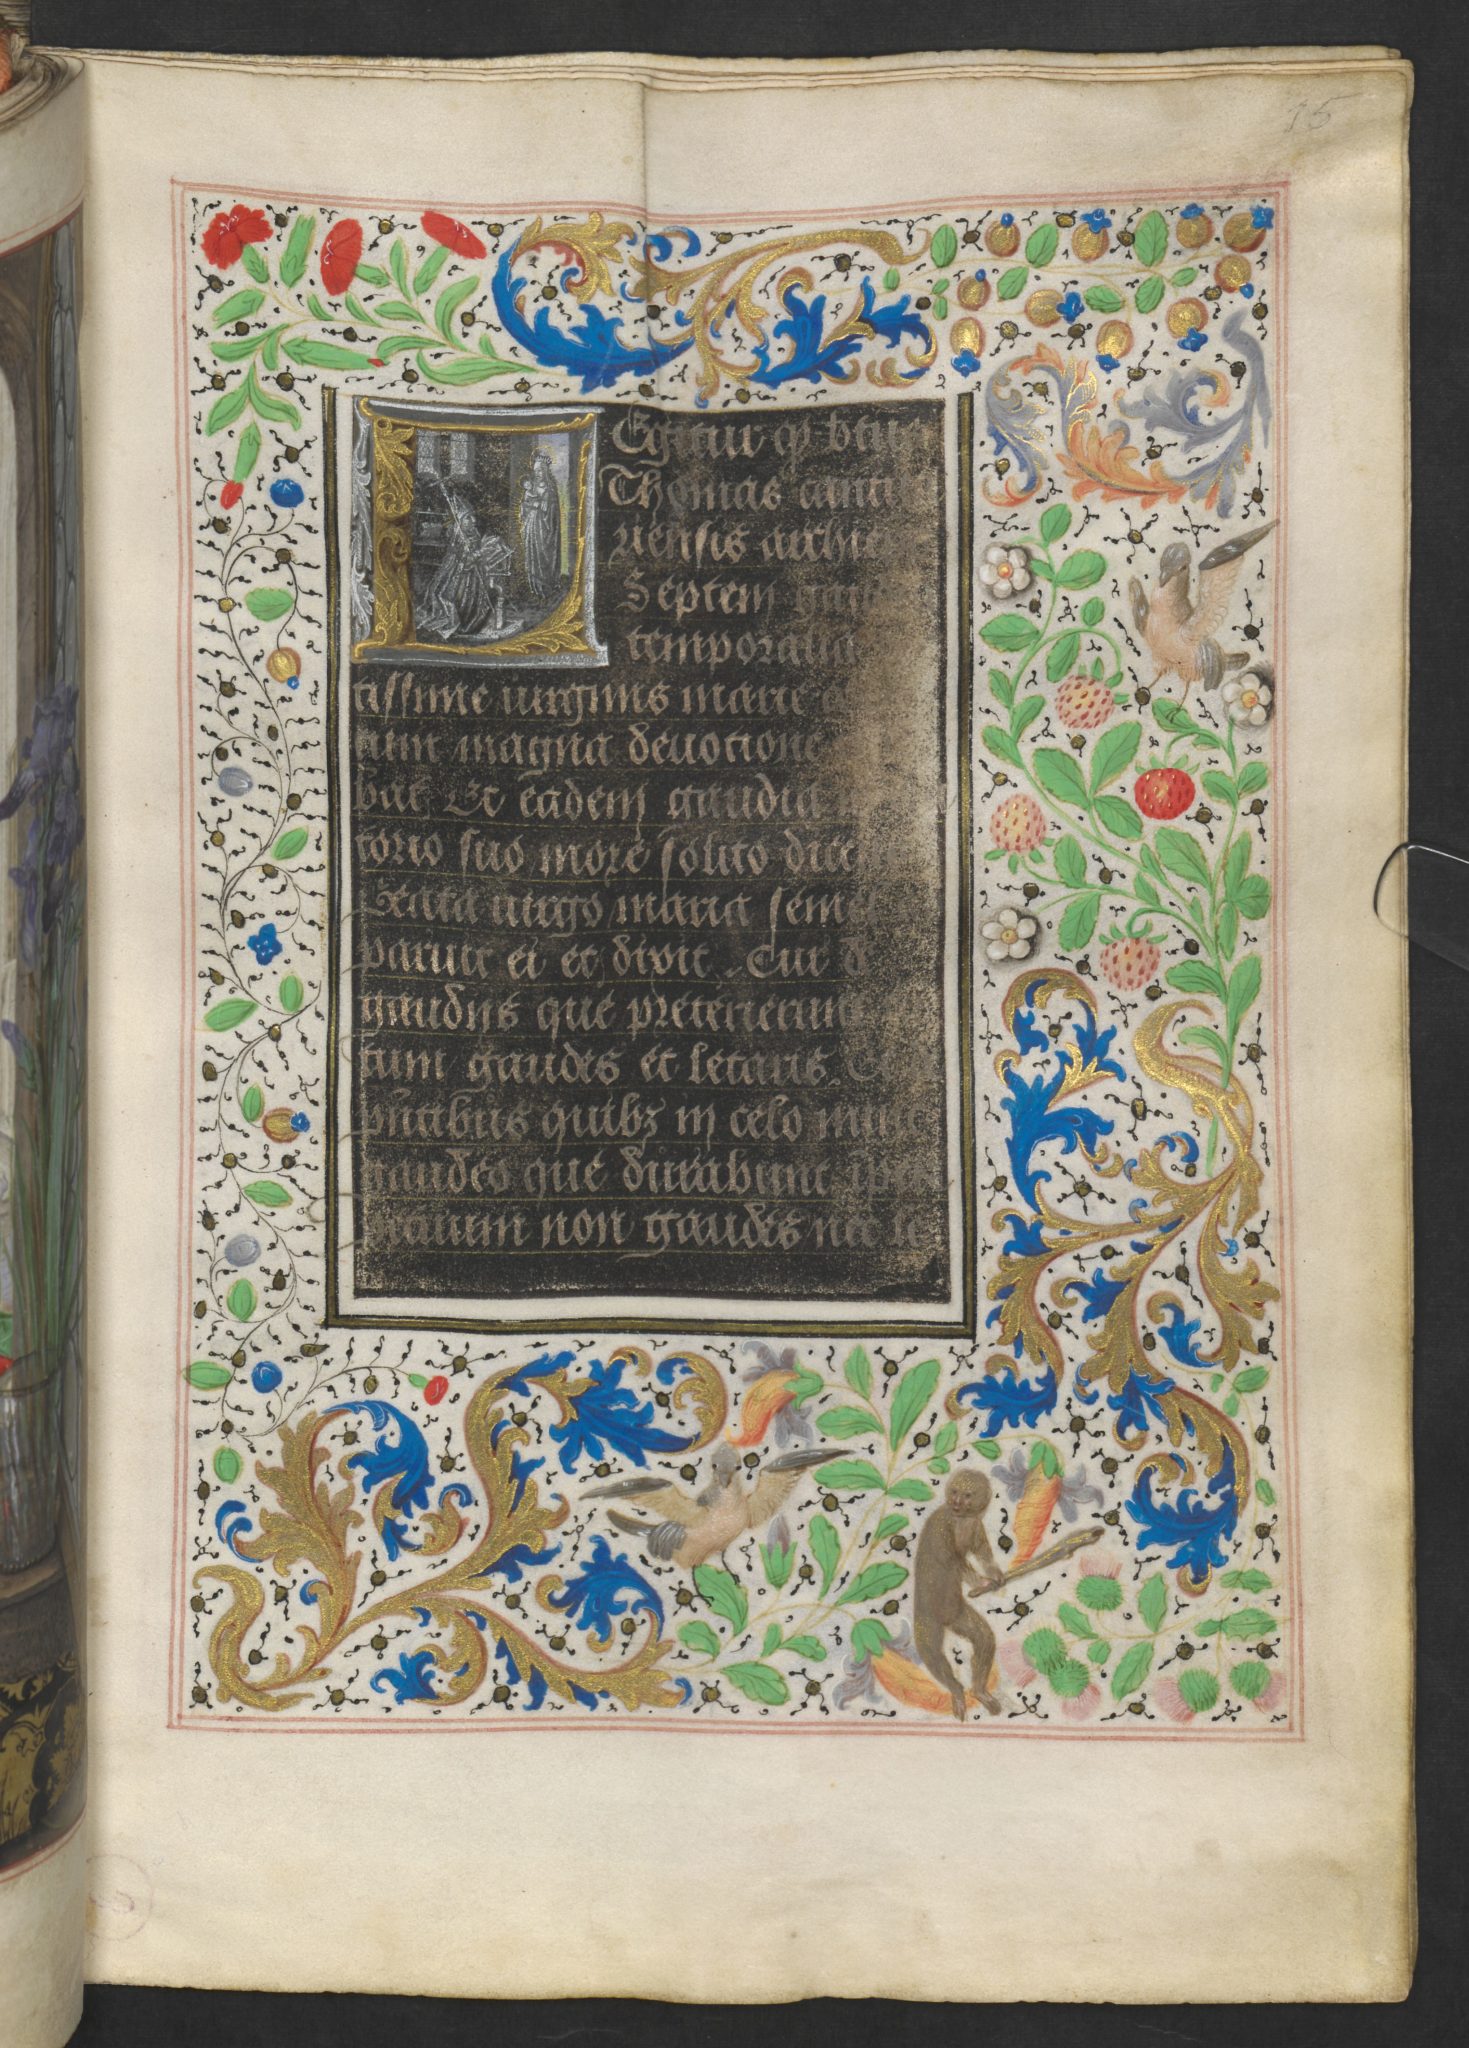 15
LEgitur qp beat
Thomas cantu
riensis archie
Septem gau
temporalia
tissime uirginis marie
cum magna deuocione
bat Et eadem gaudia
torio suo more solito dice
Beata uirgo maria semel
paruit ei et dixit Cur d
gaudijs que preterierunt
tum gaudes et letaris
phtibus quibz in celo nunc
gaudeo que durabunt
petuum non gaudes nec le